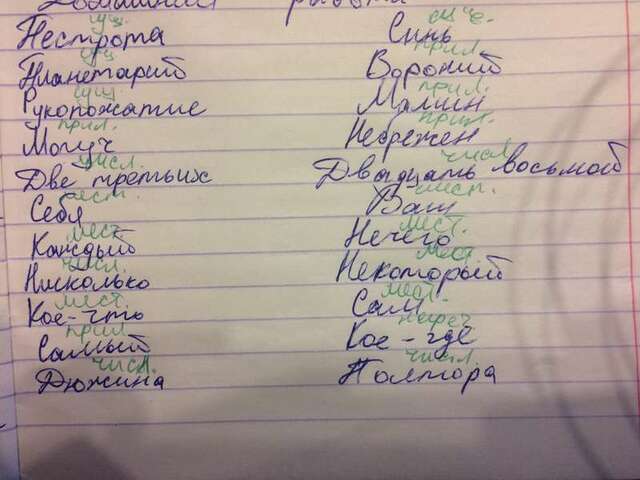 Домашняя работа
сущ.
Пестрота
сущ
Планетарий
сущ
Рукопожатие
прил.
Могуч
числ.
Две третьих
мест.
Себя
мест
Каждый
числ.
Нисколько
мест.
Кое-что
прил
Самый
числ.
Дюжина
сущ.
Синь
прил.
Вороний
прил.
Мамин
прил.
Небрежен
числ
Двадцать восьмой
мест.
Ваш
мест.
Нечего
мест
Некоторый
мест.
Сам
нареч
Кое-где
числ.
Полтора